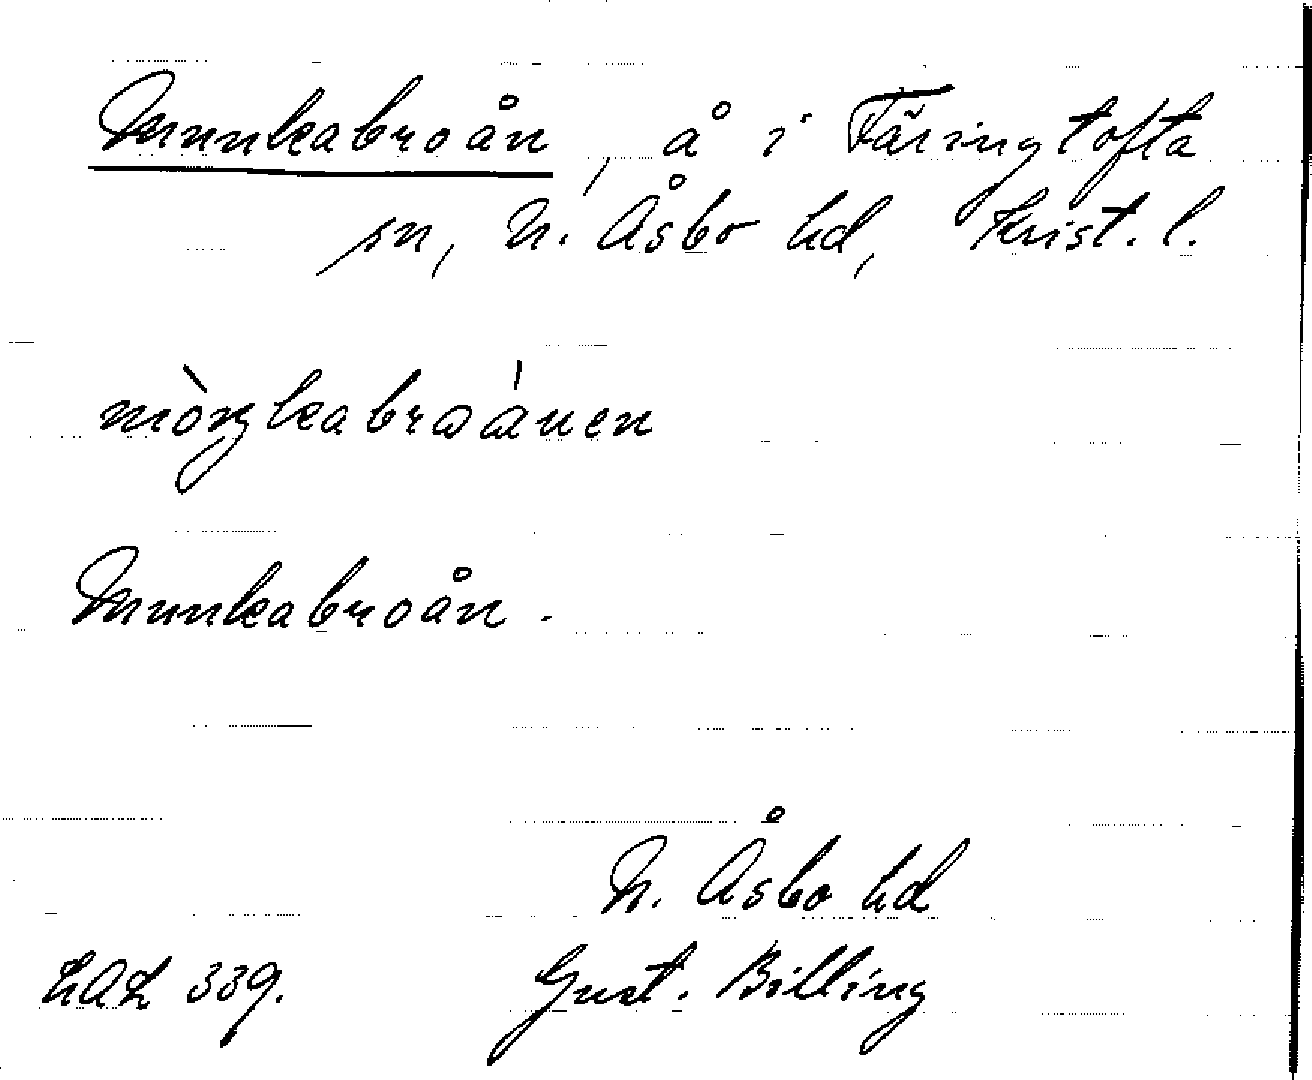 Munkabroån, å i Färingtofta
sn, N. Åsbo hd, Krist. l.
mòŋkabroánen
Munkabroån.
N. Åsbo hd
LAL 339. Gust. Billing